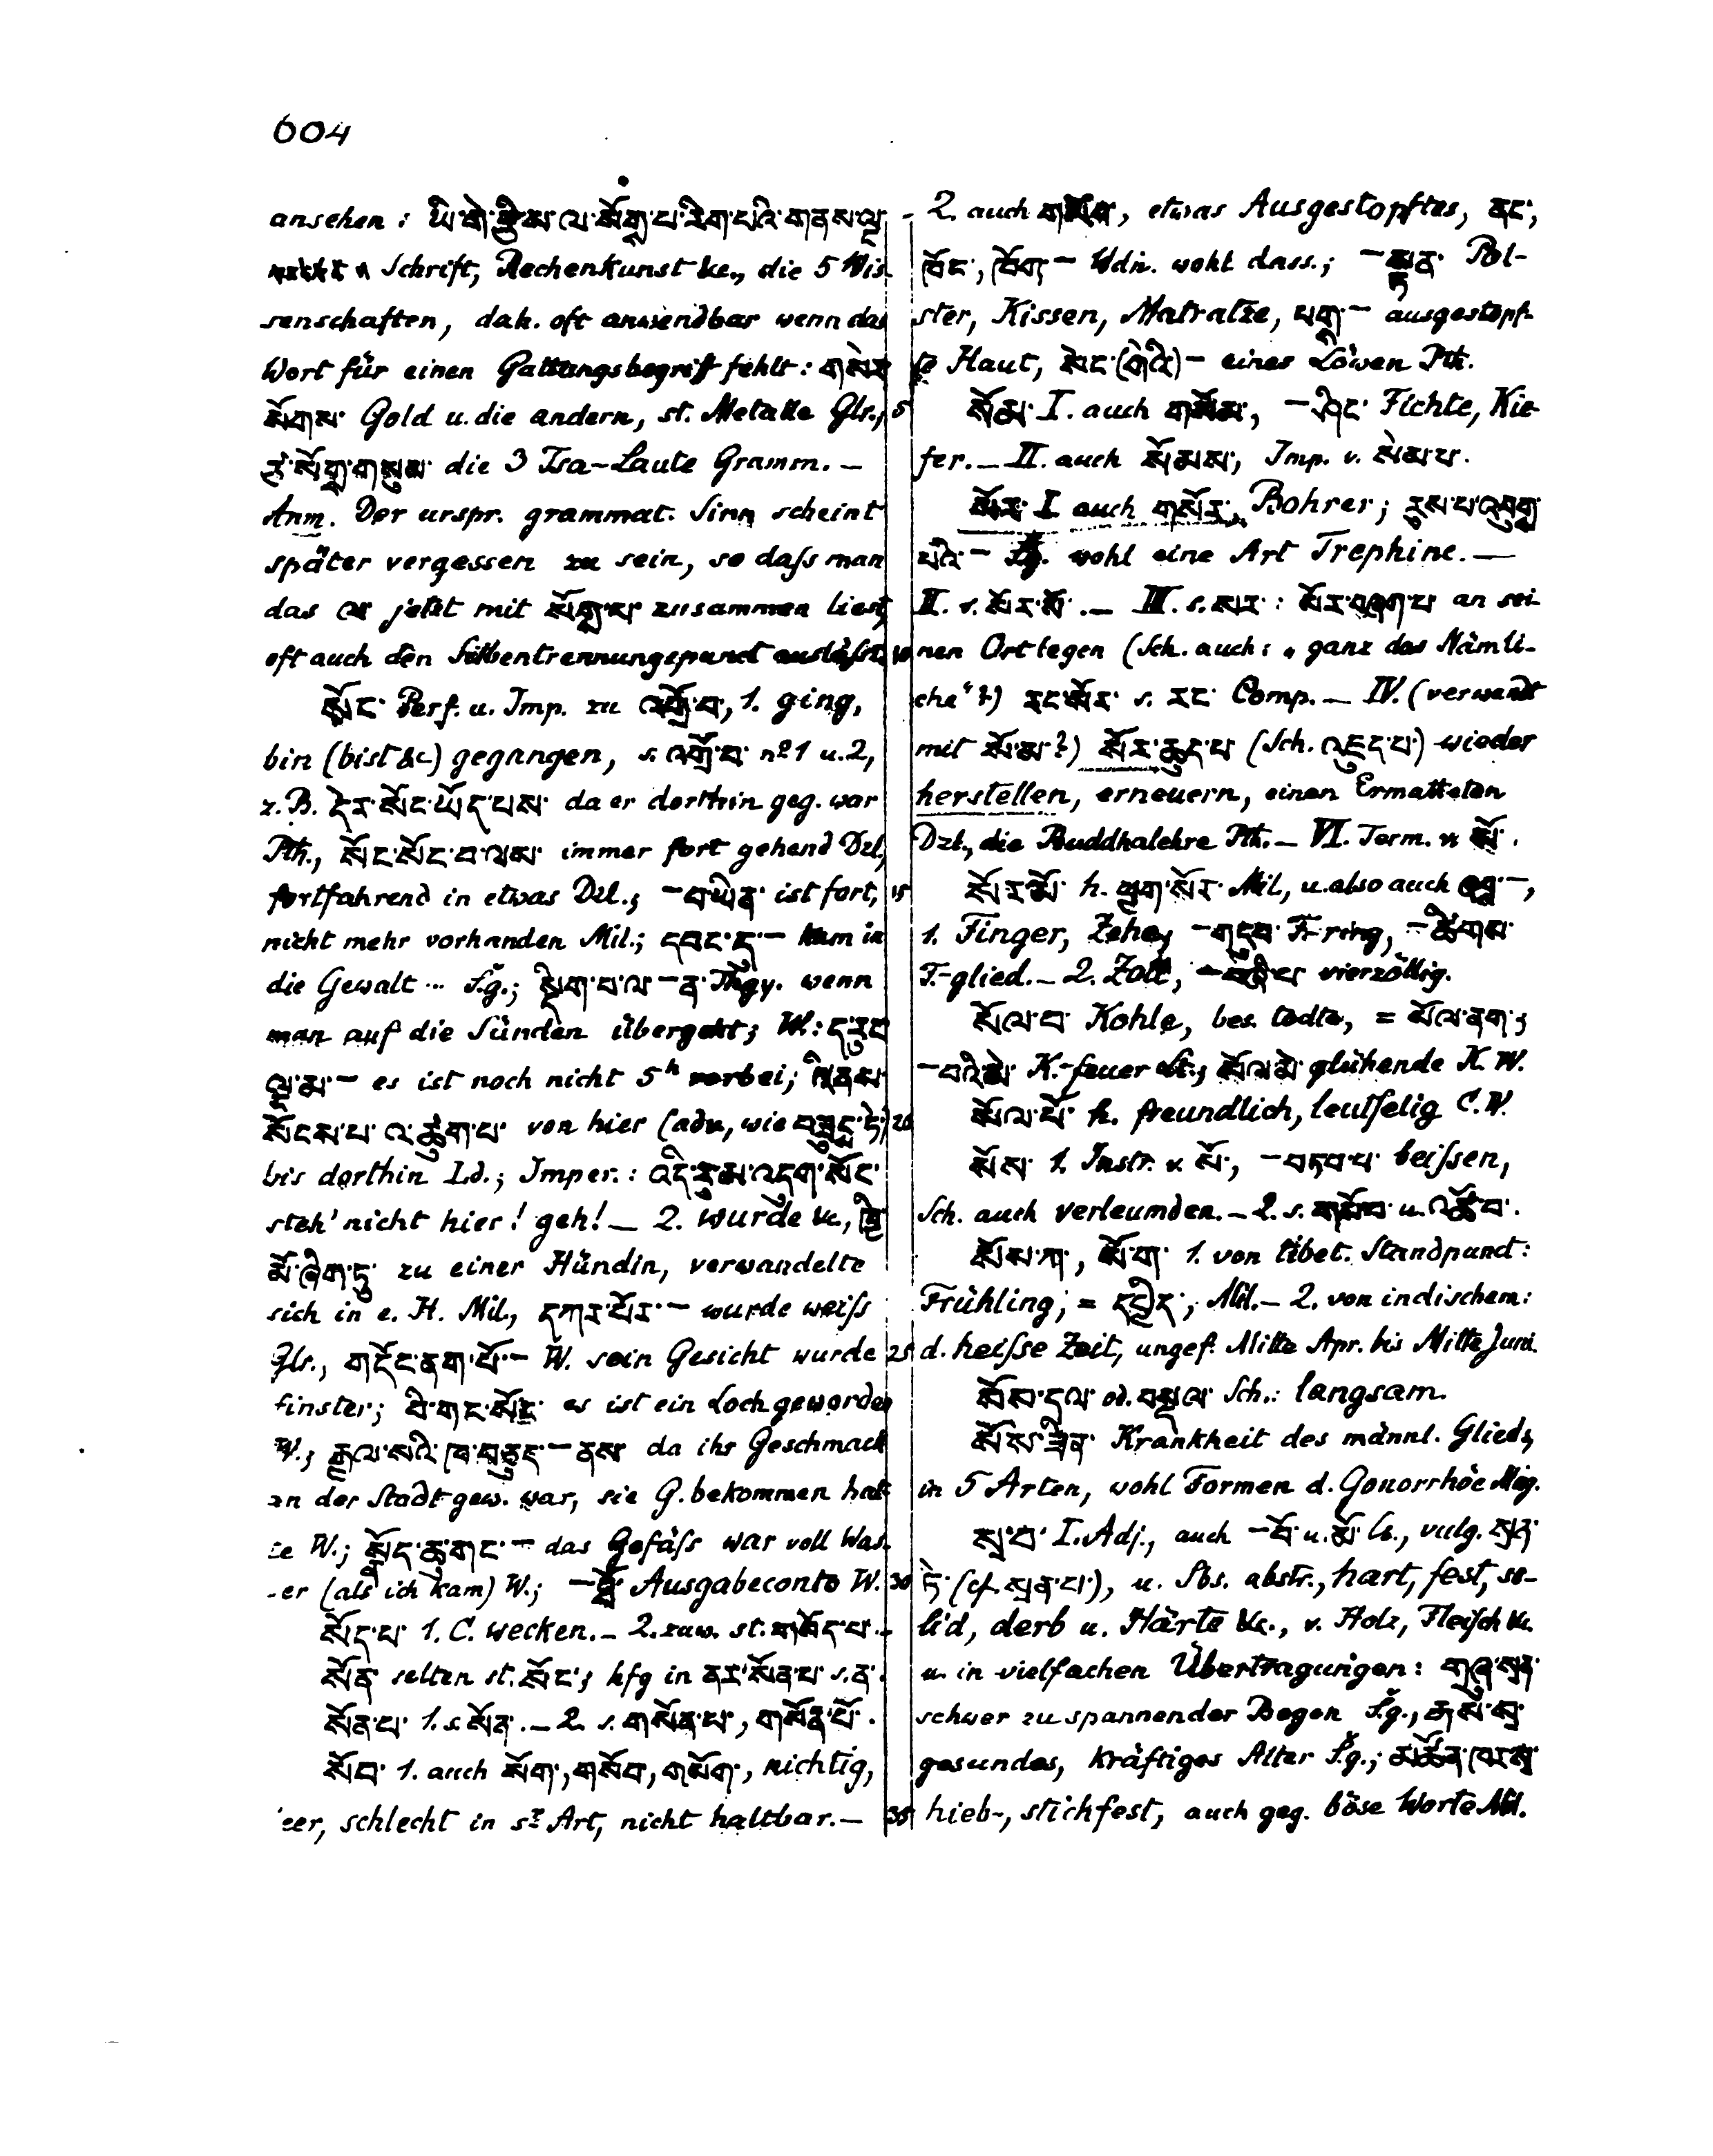 604
ansehen: ཡི་གེ་རྩིས་ལ་སོགས་པ་རིག་པའི་གནས་ལྔ་
Schrift, Rechenkunst &c., die 5 Wis-
senschaften, dah. oft anwendbar wenn das
Wort für einen Gattungsbegriff fehlt: གསེར་
སོགས་ Gold u. die andern, st. Metalle Glr.,
ཙ་སོགས་གསུམ་ die 3 Tsa-Laute Gramm. —
Anm. Der urspr. grammat. Sinn scheint
später vergessen zu sein, so daſs man
das ལ་ jetzt mit སོགས་པ་ zusammen liest,
oft auch den Silbentrennungspunct ausläſst.
སོང་ Perf. u. Imp. zu འགྲོ་བ་, 1. ging,
bin (bist &c) gegangen, s. འགྲོ་བ་ nº 1 u. 2,
z. B. དེར་སོང་ཡོད་པས་ da er dorthin geg. war
Pth., སོང་སོང་བ་ལས་ immer fort gehend Dzl.,
fortfahrend in etwas Dzl.; —བ་ཡིན་ ist fort,
nicht mehr vorhanden Mil.; དབང་དུ་— kam in
die Gewalt ... S.g.; སྡིག་པ་ལ་—ན་ Thgy. wenn
man auf die Sünden übergeht; W.: ད་རུང་
ལྔ་མ་— es ist noch nicht 5ʰ vorbei; འི་ནས་
སོངས་པ་འ་ཚུག་པ་ von hier (adv., wie བསྡད་དེ་)
bis dorthin Ld.; Imper.: འདི་རུ་མ་འདུག་སོང་
steh' nicht hier! geh! — 2. wurde &c., ཁྱི་
མོ་ཞིག་ཏུ་ zu einer Hündin, verwandelte
sich in e. H. Mil., དཀར་པོར་— wurde weiſs
Glr., གདོང་ནག་པོ་— W. sein Gesicht wurde
finster; བི་གང་སོང་ es ist ein Loch geworden
W.; རྒྱལ་སའི་ཁ་བཅུད་—ནས་ da ihr Geschmack
an der Stadt gew. war, sie G. bekommen hat-
te W.; སྣོད་ཆུ་གང་— das Gefäſs war voll Was-
ser (als ich kam) W.; — Ausgabeconto W.
སོད་པ་ 1. C. wecken. — 2. zuw. st. གསོད་པ་. —
སོན་ selten st. སོང་; hfg in ནར་སོན་པ་ s. ན་.
སོན་པ་ 1. s. སོན་. — 2. s. གསོན་པ་, གསོན་པོ་.
སོབ་ 1. auch སོག་, གསོབ་, གསོག་, nichtig,
leer, schlecht in sʳ Art, nicht haltbar. —
2. auch གསོབ་, etwas Ausgestopftes, ནང་,
ཁོང་, ཁོག་— Wdn. wohl dass.; —སྟན་ Pol-
ster, Kissen, Matratze, པགས་— ausgestopf-
te Haut, སེང་(གེའི་)— eines Löwen Pth.
སོམ་ I. auch གསོམ་, —ཤིང་ Fichte, Kie-
fer. — II. auch སོམས་, Imp. v. སེམས་པ་.
སོར་ I auch གསོར་, Bohrer; རུས་པ་འབུག་
པའི་— S.g. wohl eine Art Trephine. —
II. s. སོར་མོ་. — III. s. སར་: སོར་བཞག་པ་ an sei-
nen Ort legen (Sch. auch: „ganz das Nämli-
che“?) རང་སོར་ s. རང་ Comp. — IV. (verwandt
mit སོ་མ་?) སོར་ཆུད་པ་ (Sch. འཇུད་པ་) wieder
herstellen, erneuern, einen Ermatteten
Dzl., die Buddhalehre Pth. — VI. Term. v. སོ་.
སོར་མོ་ h. ཕྱག་སོར་ Mil., u. also auch ལག་—,
1. Finger, Zehe; —གདུབ་ F-ring, —ཚིགས་
F.-glied. — 2. Zoll, —བཞི་པ་ vierzöllig.
སོལ་བ་ Kohle, bes. todte, = སོལ་ནག་;
—བའི་མེ་ K.-feuer S.t.; སོལ་མེ་ glühende K. W.
སོལ་པོ་ h. freundlich, leutſelig C. W.
སོས་ 1. Instr. v. སོ་, —བཏབ་པ་ beiſsen,
Sch. auch verleumden. — 2. s. གསོབ་ u. འཚོ་བ་.
སོས་ཀ་, སོ་ག་ 1. von tibet. Standpunct:
Frühling, = དཔྱིད་, Mil. — 2. von indischem:
d. heiſse Zeit, ungef. Mitte Apr. bis Mitte Juni.
སོས་དལ་ od. བསྡལ་ Sch.: langsam.
སོས་ཟིན་ Krankheit des männl. Glieds,
in 5 Arten, wohl Formen d. Gonorrhöe Mig.
སྲ་བ་ I. Adj., auch —བོ་ u. མོ་ Cs., vulg. སྲན་
ཏེ་ (cf. སྲན་པ་), u. Sbs. abstr., hart, fest, so-
lid, derb u. Härte &c., v. Holz, Fleiſch &c.
u. in vielfachen Übertragungen: གཞུ་སྲན་
schwer zu spannender Bogen S.g., ན་སོ་སྲ་
gesundes, kräftiges Alter S.g.; མཚོན་ཁར་སྲ་
hieb-, stichfest, auch geg. böse Worte Mil.